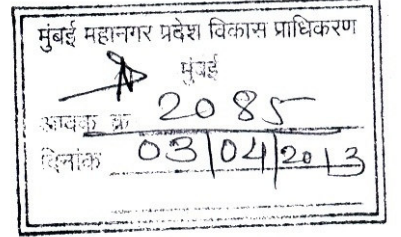 मुंबई महानगर प्रदेश विकास प्राधिकरण
मुंबई
आवक क्र 2085
दिनांक 03/04/2013